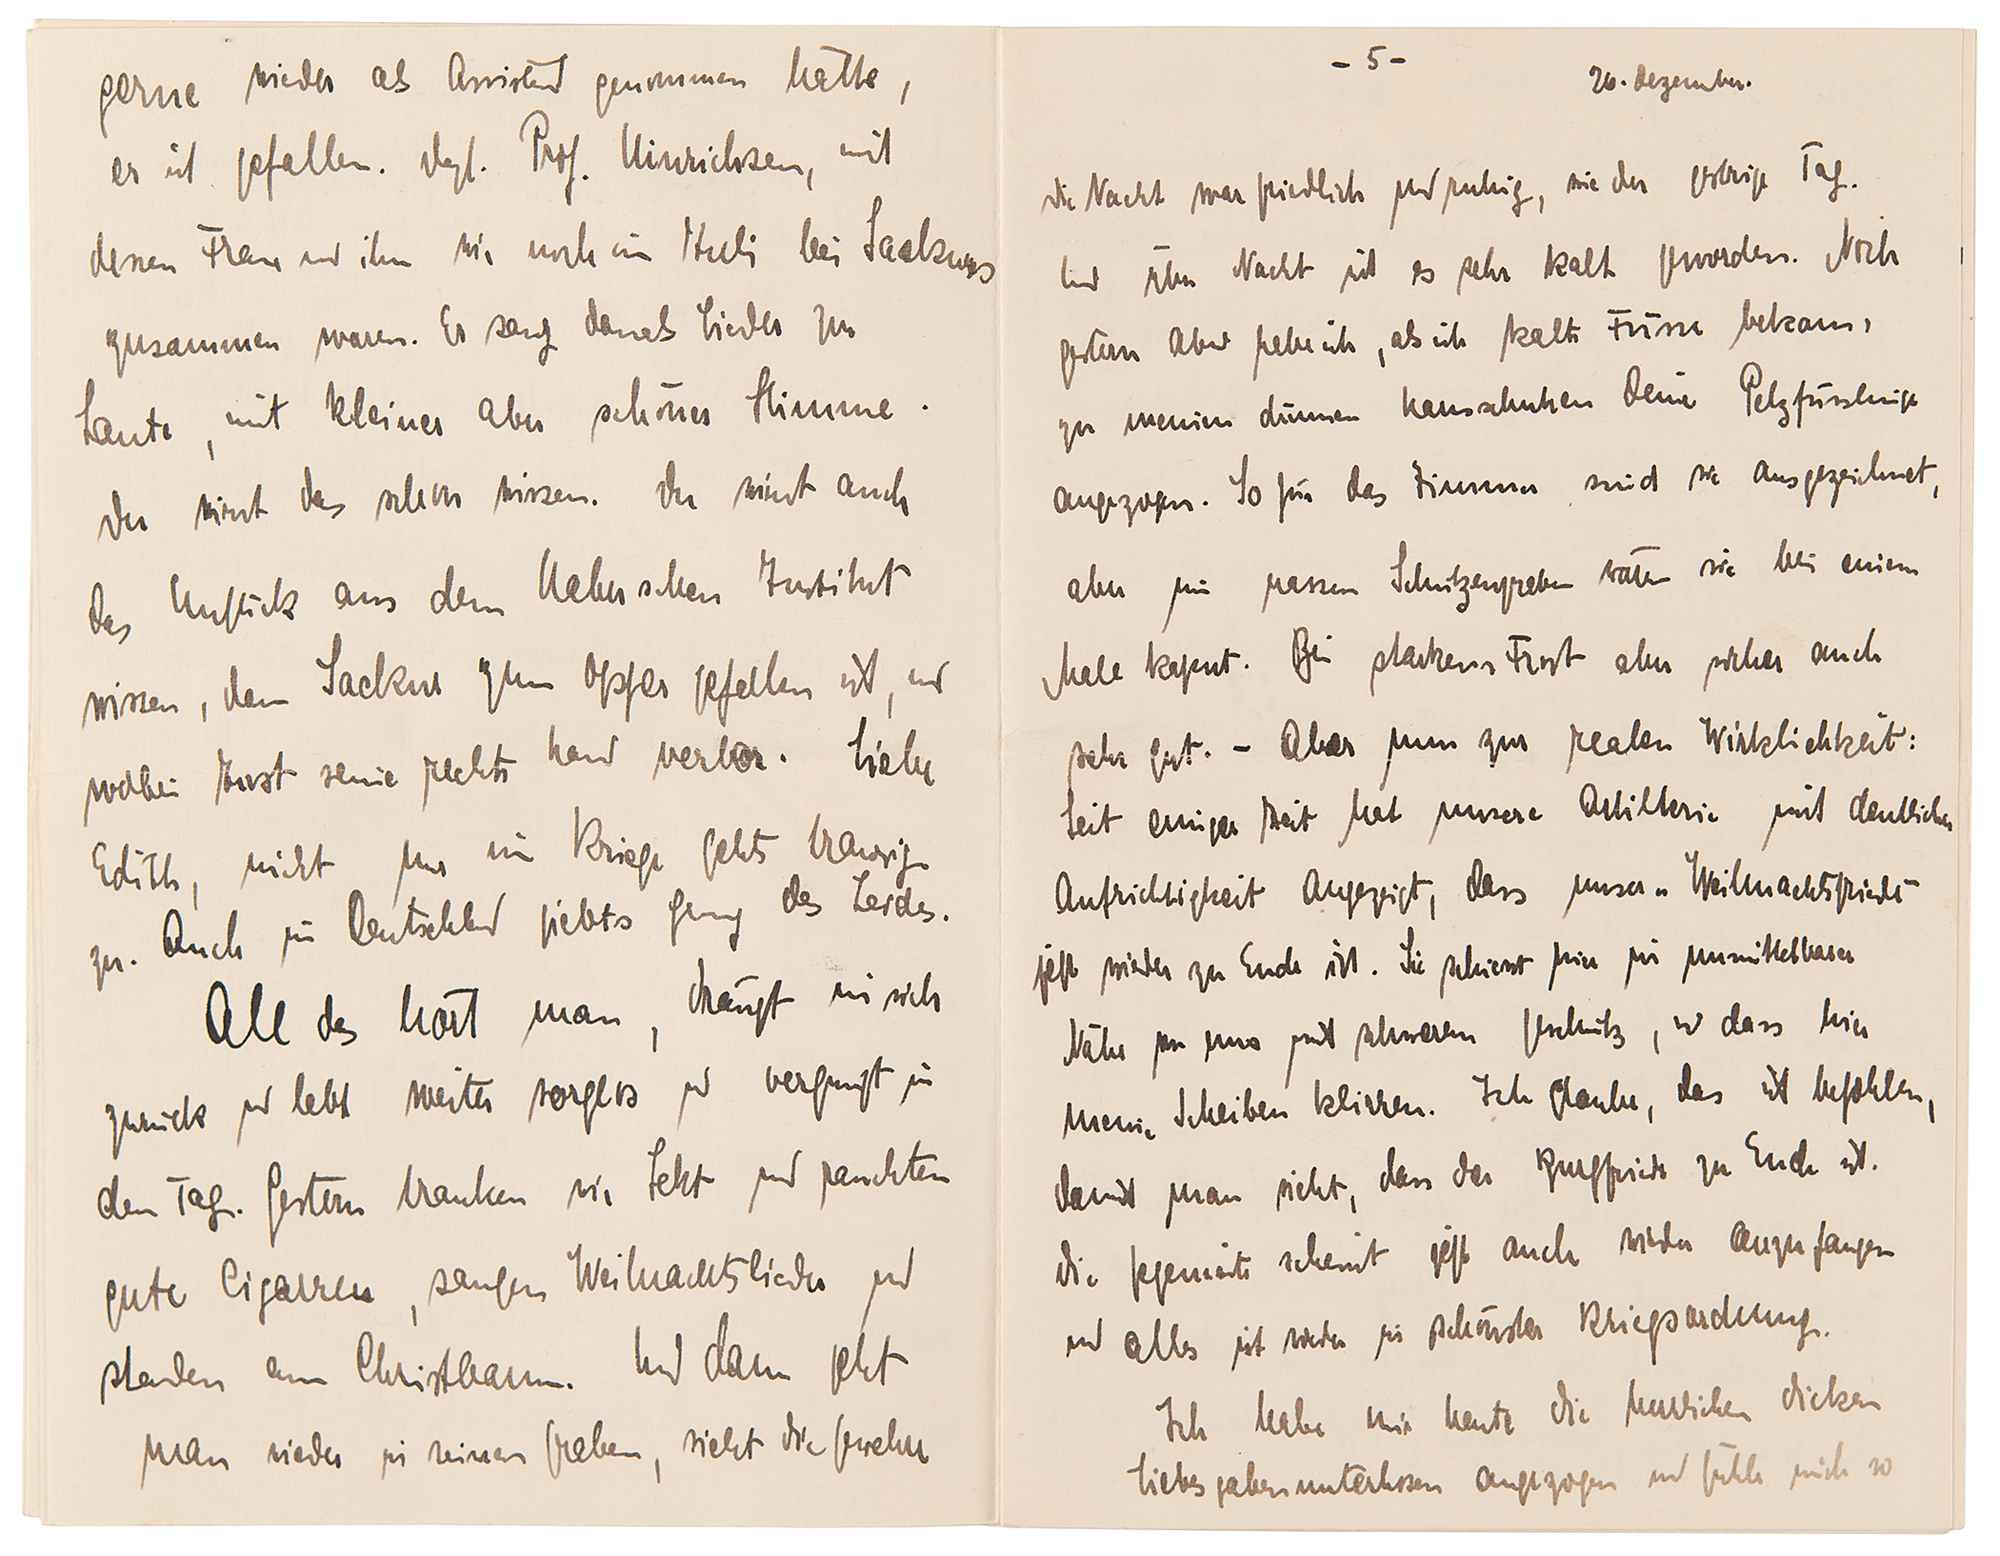 gerne wieder als Assistent genommen hätte,
er ist gefallen. degl. Prof. Hinrichsen, mit
dessen Frau und ihm wir noch im Juli bei Sackurs
zusammen waren. Er sang damals Lieder zur
Laute, mit kleiner aber schöner Stimme.
Du wirst das schon wissen. Du wirst auch
das Unglück aus dem Haberschen Institut
wissen, dem Sackur zum Opfer gefallen ist, und
wobei Just seine rechte Hand verlor. Liebe
Edith, nicht nur im Kriege gehts traurig
zu. Auch in Deutschland giebts genug des Leides.
All das hört man, drängt in sich
zurück und lebt weiter sorglos und vergnügt in
den Tag. Gestern tranken wir Sekt und rauchten
gute Cigarren, sangen Weihnachtslieder und
standen am Christbaum. Und dann geht
man wieder in seinen Graben, sieht die Gewehre
- 5 -
26. Dezember.
Die Nacht war friedlich und ruhig, wie der gestrige Tag.
Und über Nacht ist es sehr kalt geworden. Noch
gestern Abend habe ich, als ich kalte Füsse bekam,
zu meinen dünnen Hausschuhen Deine Pelzfüsslinge
angezogen. So für das Zimmer sind sie ausgezeichnet,
aber im nassen Schützengraben wären sie bei einem
Male kaput. Bei starkem Frost aber sicher auch
sehr gut. - Aber nun zur realen Wirklichkeit:
Seit einiger Zeit hat unsere Artillerie mit deutlicher
Aufrichtigkeit angezeigt, dass unser Weihnachtsfriede
jetzt wieder zu Ende ist. Sie schiesst hier in unmittelbarer
Nähe von uns mit schwerem Geschütz, so dass hier
meine Scheiben klirren. Ich glaube, das ist befohlen,
damit man sieht, dass der Burgfriede zu Ende ist.
Die Gegenseite scheint jetzt auch wieder anzufangen
und alles ist wieder in schönster Kriegsordnung.
Ich habe mir heute die herrlichen dicken
Liebesgabenunterhosen angezogen und fühle mich so